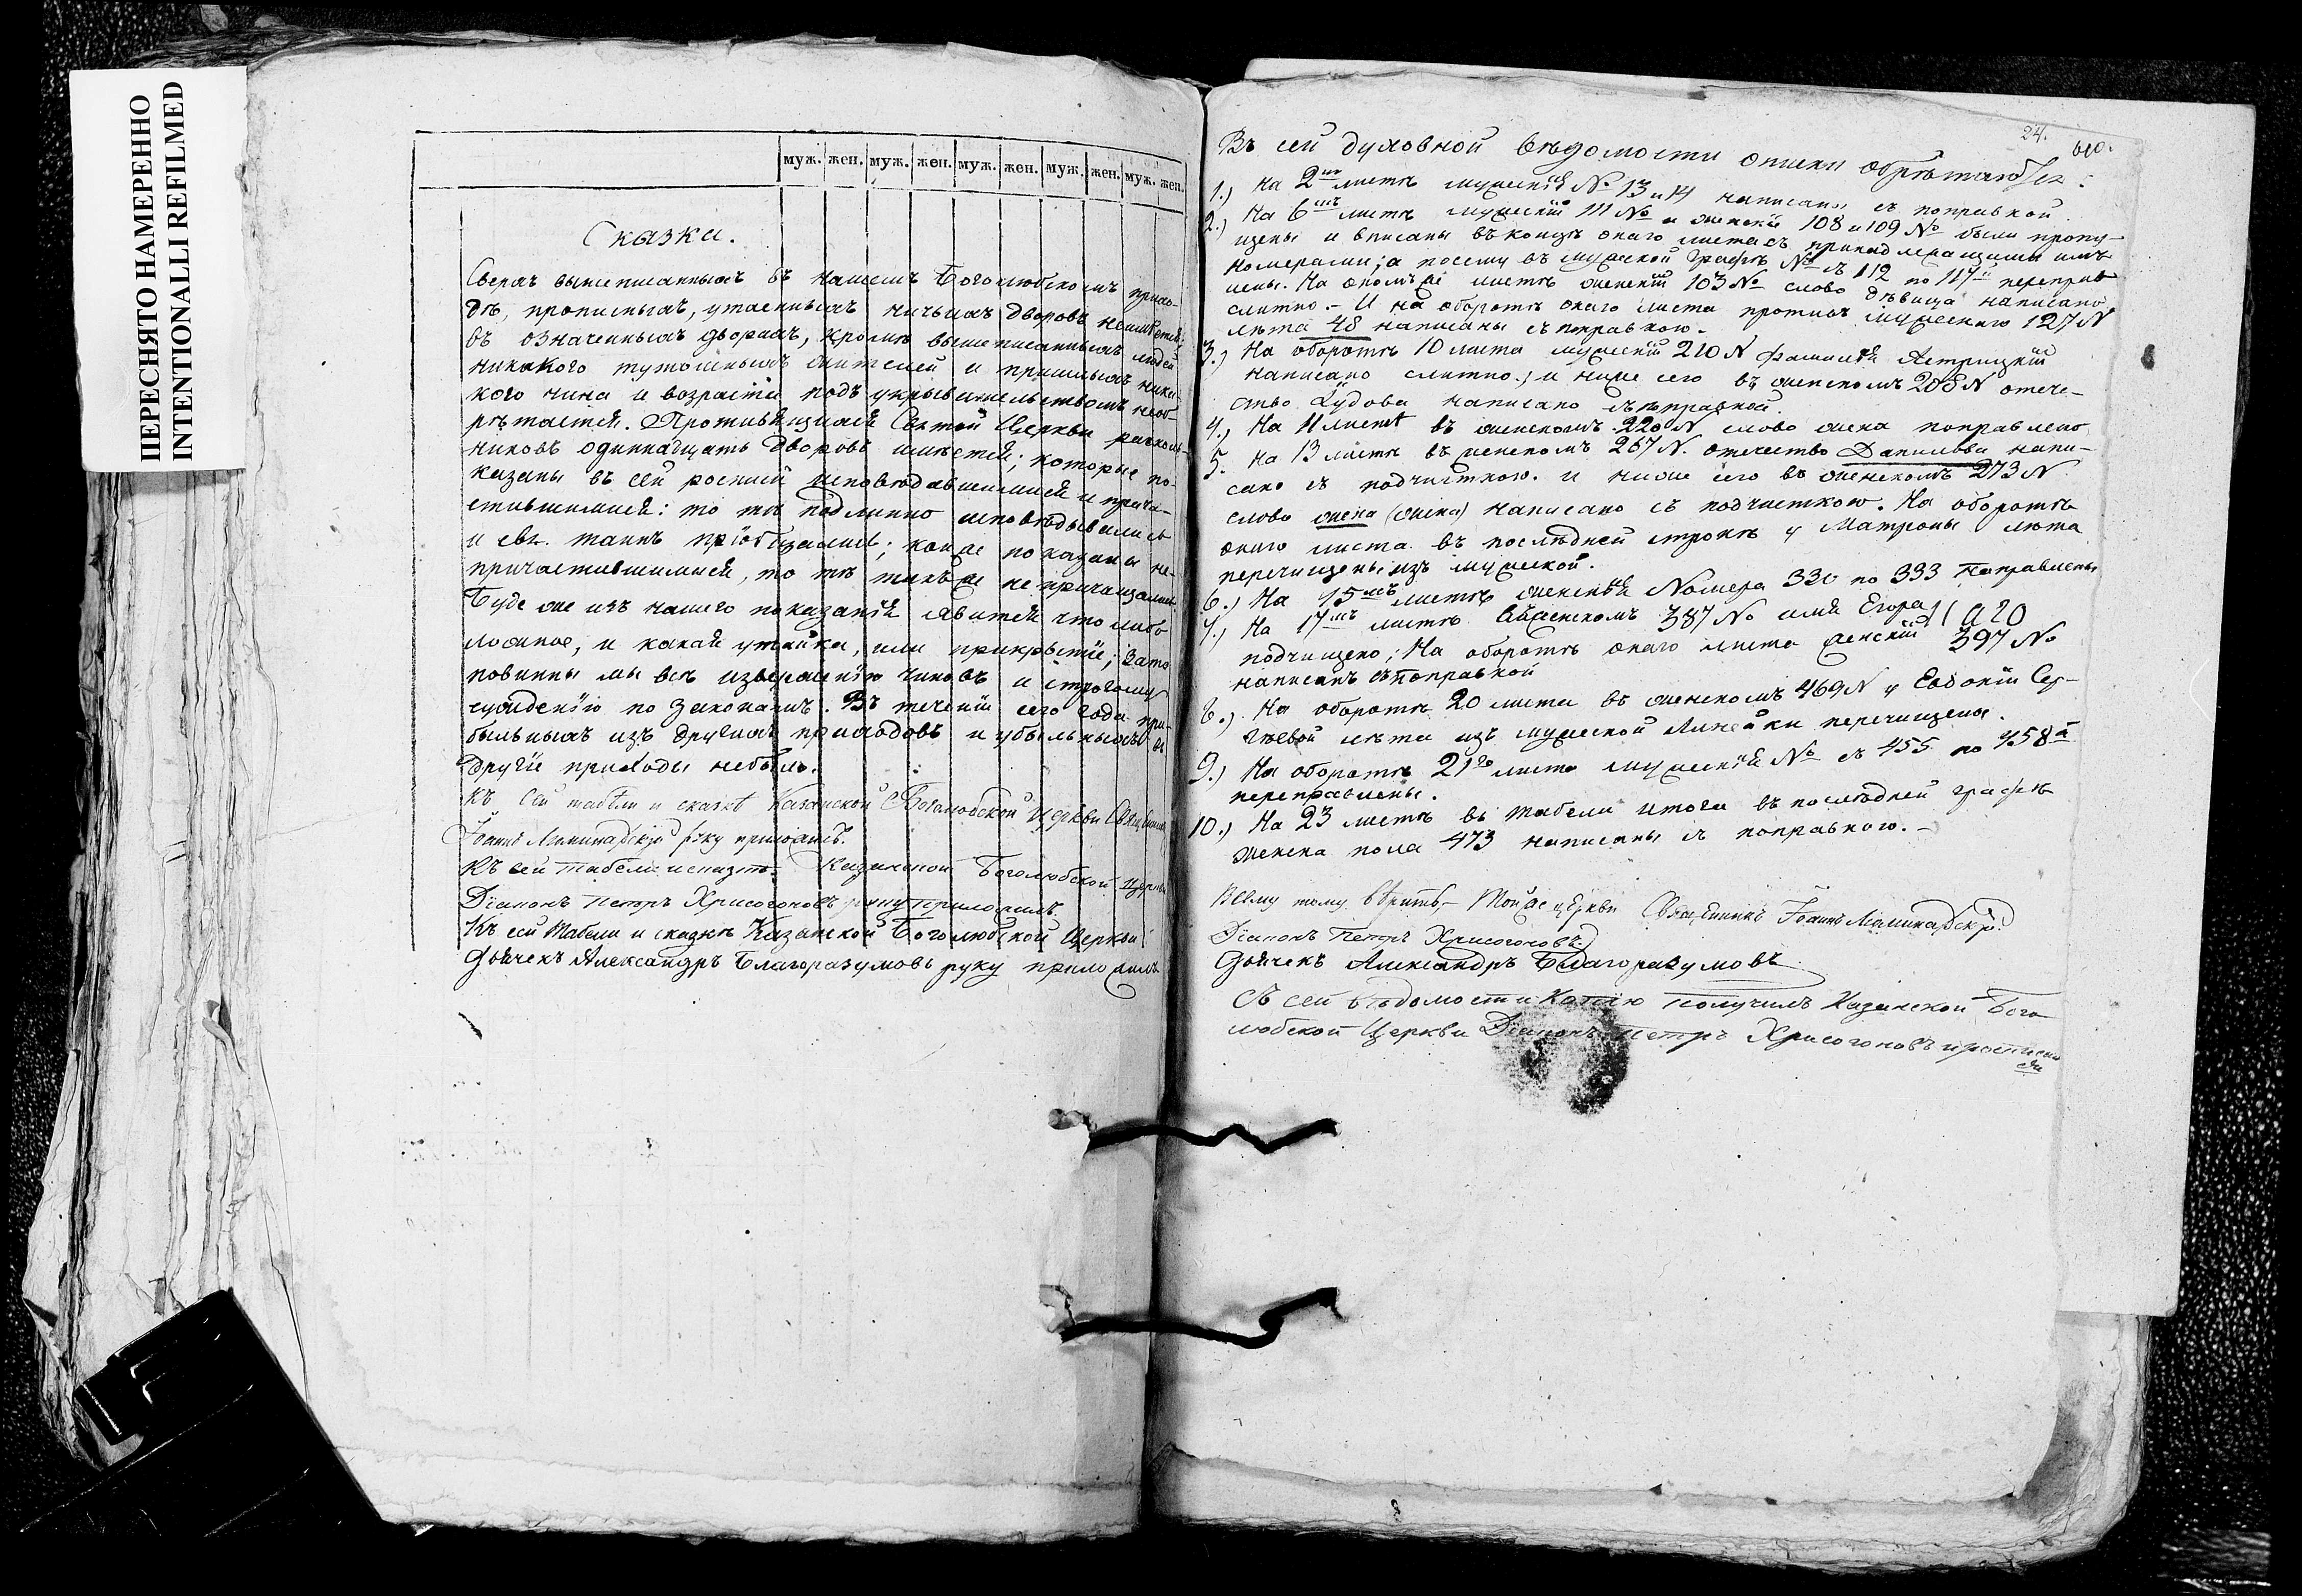 ПЕРЕСНЯТО НАМЕРЕННО
INTENTIONALLI REFILMED
муж. жен. муж. жен. муж. жен. муж. жен. муж. жен.
Сказка.
Сверхъ вышеписанныхъ въ нашемъ Боголюбскомъ прихо-
дѣ, прописныхъ, утаенныхъ ничьихъ дворовъ неимѣется;
въ означенныхъ дворахъ, кромѣ вышеписанныхъ людей
никакого тутошныхъ жителей и пришлыхъ ника-
кого чина и возраста подъ укрывательствомъ необ-
рѣтается. Противящихся Святой Церкви расколь-
никовъ одиннадцать дворовъ имѣется; которые по-
казаны въ сей росписи исповѣдавшимися и прича-
стившимися: то тѣ подлинно исповѣдывались
и свт. таинъ пріобщались; кои же показаны не-
причастившимися, то тѣ такъ же не причащались.
Буде же изъ нашего показанія явится что либо
ложное, и какая утайка, или прикрытіе; за то
повинны мы всѣ изверженію чиновъ и строгому
сужденію по законамъ. Въ теченіи сего года при-
быльныхъ изъ другихъ приходовъ и убыльныхъ въ
другіе приходы небыло.
Къ сей табѣли и сказкѣ Казанской Боголюбской Церкви Священникъ
Іоаннъ руку приложилъ.
Къ сей табели и сказкѣ Казанской Боголюбской Церкви
Діаконъ Петръ Хрисогоновъ руку приложилъ.
Къ сей Табели и сказкѣ Казанской Боголюбской Церкви
Дьячекъ Александръ Благоразумовъ руку приложилъ
24. 610.
Въ сей духовной вѣдомости описки обрѣтаются:
1.) На 2мъ листѣ мужескія № 13 и 14 написаны съ поправкой.
2.) На 6мъ листѣ мужескій 111 № и женскіе 108 и 109 № были пропу-
щены и вписаны въ концѣ онаго листа съ принадлежащими имъ
номерами; а посему въ мужеской графѣ № съ 112 по 117й переправ-
лены. На ономъ же листѣ женскій 103 № слово дѣвица написано
слитно. - И на оборотѣ онаго листа противъ мужескаго 127 №
лѣта 48 написаны съ поправкою.
3.) На оборотѣ 10 листа мужескій 210 N фамилія Ястрицкій
написано слитно.; и ниже сего въ женскомъ 208 N отече-
ство написано съ поправкой.
4.) На 11 листѣ въ женскомъ 220 N слово жена поправлено
5. На 13 листѣ въ женскомъ 267 N. отечество Данилова напи-
сано съ подчисткою. и ниже его въ женскомъ 273 N
слово жена (жена) написано съ подчисткою. На оборотѣ
онаго листа въ послѣдней строкѣ у Матроны лѣта
перечищены изъ мужской.
6.) На 15мъ листѣ женскія Номера 330 по 333 поправлены
7.) На 17мъ листѣ въ женскомъ 387 № имя Егора
подчищено; На оборотѣ онаго листа женскій 397 №
написанъ съ поправкой
8.) На оборотѣ 20 листа въ женскомъ 469 N у Евдокіи Сер-
гѣевой лѣта изъ мужеской линейки перечищены.
9.) На оборотѣ 21го листа мужескія № съ 455 по 458й
переправлены.
10.) На 23 листѣ въ табели итога въ послѣдней графѣ
женска пола 473 написаны съ поправкою. -
Всему тому вѣрить, - Той же церкви Священникъ Іоаннъ
Діаконъ Петръ Хрисогоновъ.
Дьячекъ Александръ Благоразумовъ
Съ сей вѣдомости Копію получилъ Казанской Бого-
любской Церкви Діаконъ Петръ Хрисогоновъ и росписал
ся